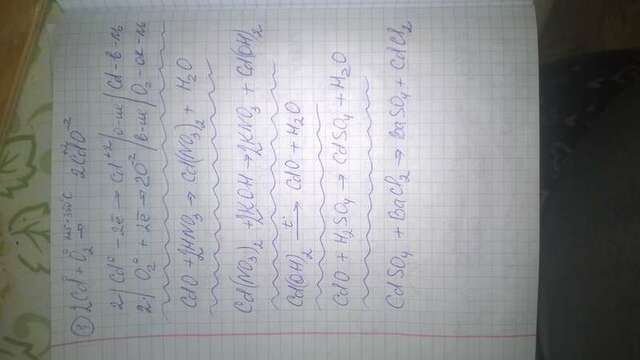 ③ 2Cd⁰ + O₂⁰ → 2Cd⁺²O⁻²
2 | Cd⁰ - 2ē → Cd⁺² | о-ие | Cd - в-ль
2 | O₂⁰ + 2ē → 2O⁻² | в-ие | O₂ - ок-ль
CdO + 2HNO₃ → Cd(NO₃)₂ + H₂O
Cd(NO₃)₂ + 2KOH → 2KNO₃ + Cd(OH)₂
Cd(OH)₂ t°→ CdO + H₂O
CdO + H₂SO₄ → CdSO₄ + H₂O
CdSO₄ + BaCl₂ → BaSO₄ + CdCl₂